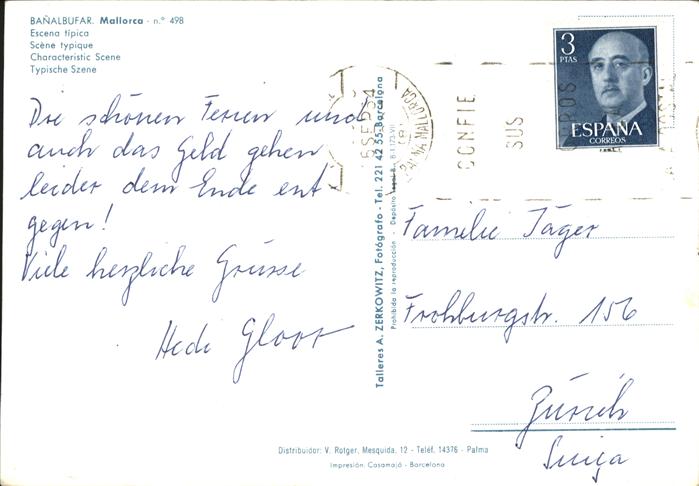 BAÑALBUFAR. Mallorca - n.º 498
Escena típica
Scène typique
Characteristic Scene
Typische Szene
Die schönen Ferien und
auch das Geld gehen
leider dem Ende ent
gegen!
Viele herzliche Grüsse
Hedi Gloor
Talleres A. ZERKOWITZ, Fotógrafo - Tel. 221 42 55-Barcelona
Prohibida la reproducción - Depósito
PALMA MALLORCA
CONFIE
SUS
3
PTAS
ESPAÑA
CORREOS
Familie Jäger
Frohburgstr. 156
Zürich
Suiza
Distribuidor: V. Rotger, Mesquida, 12 - Teléf. 14376 - Palma
Impresión Casamajó - Barcelona